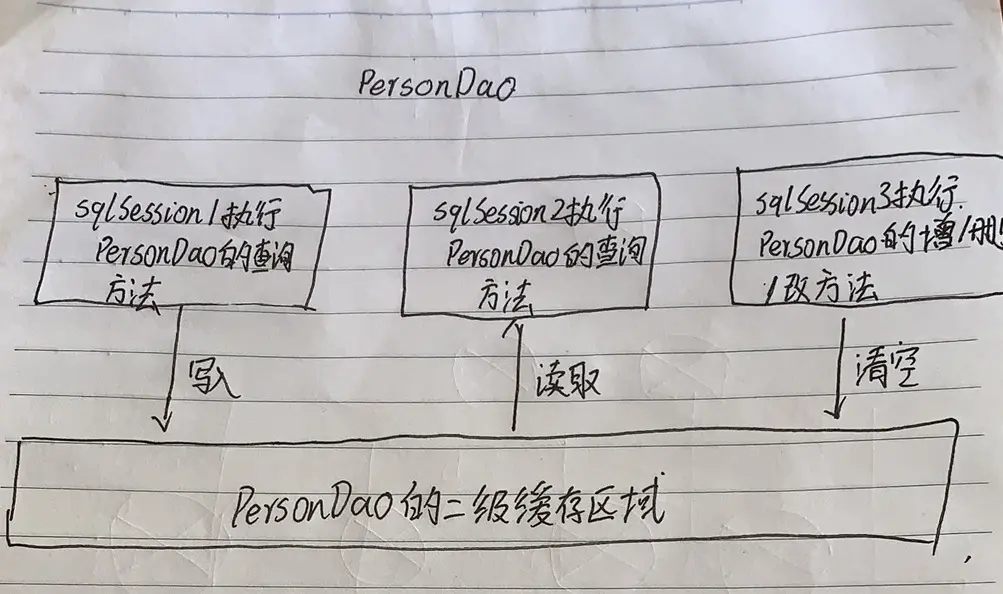 PersonDao
sqlSession1执行
PersonDao的查询
方法
sqlSession2执行
PersonDao的查询
方法
sqlSession3执行
PersonDao的增/删
/改方法
写入
读取
清空
PersonDao的二级缓存区域